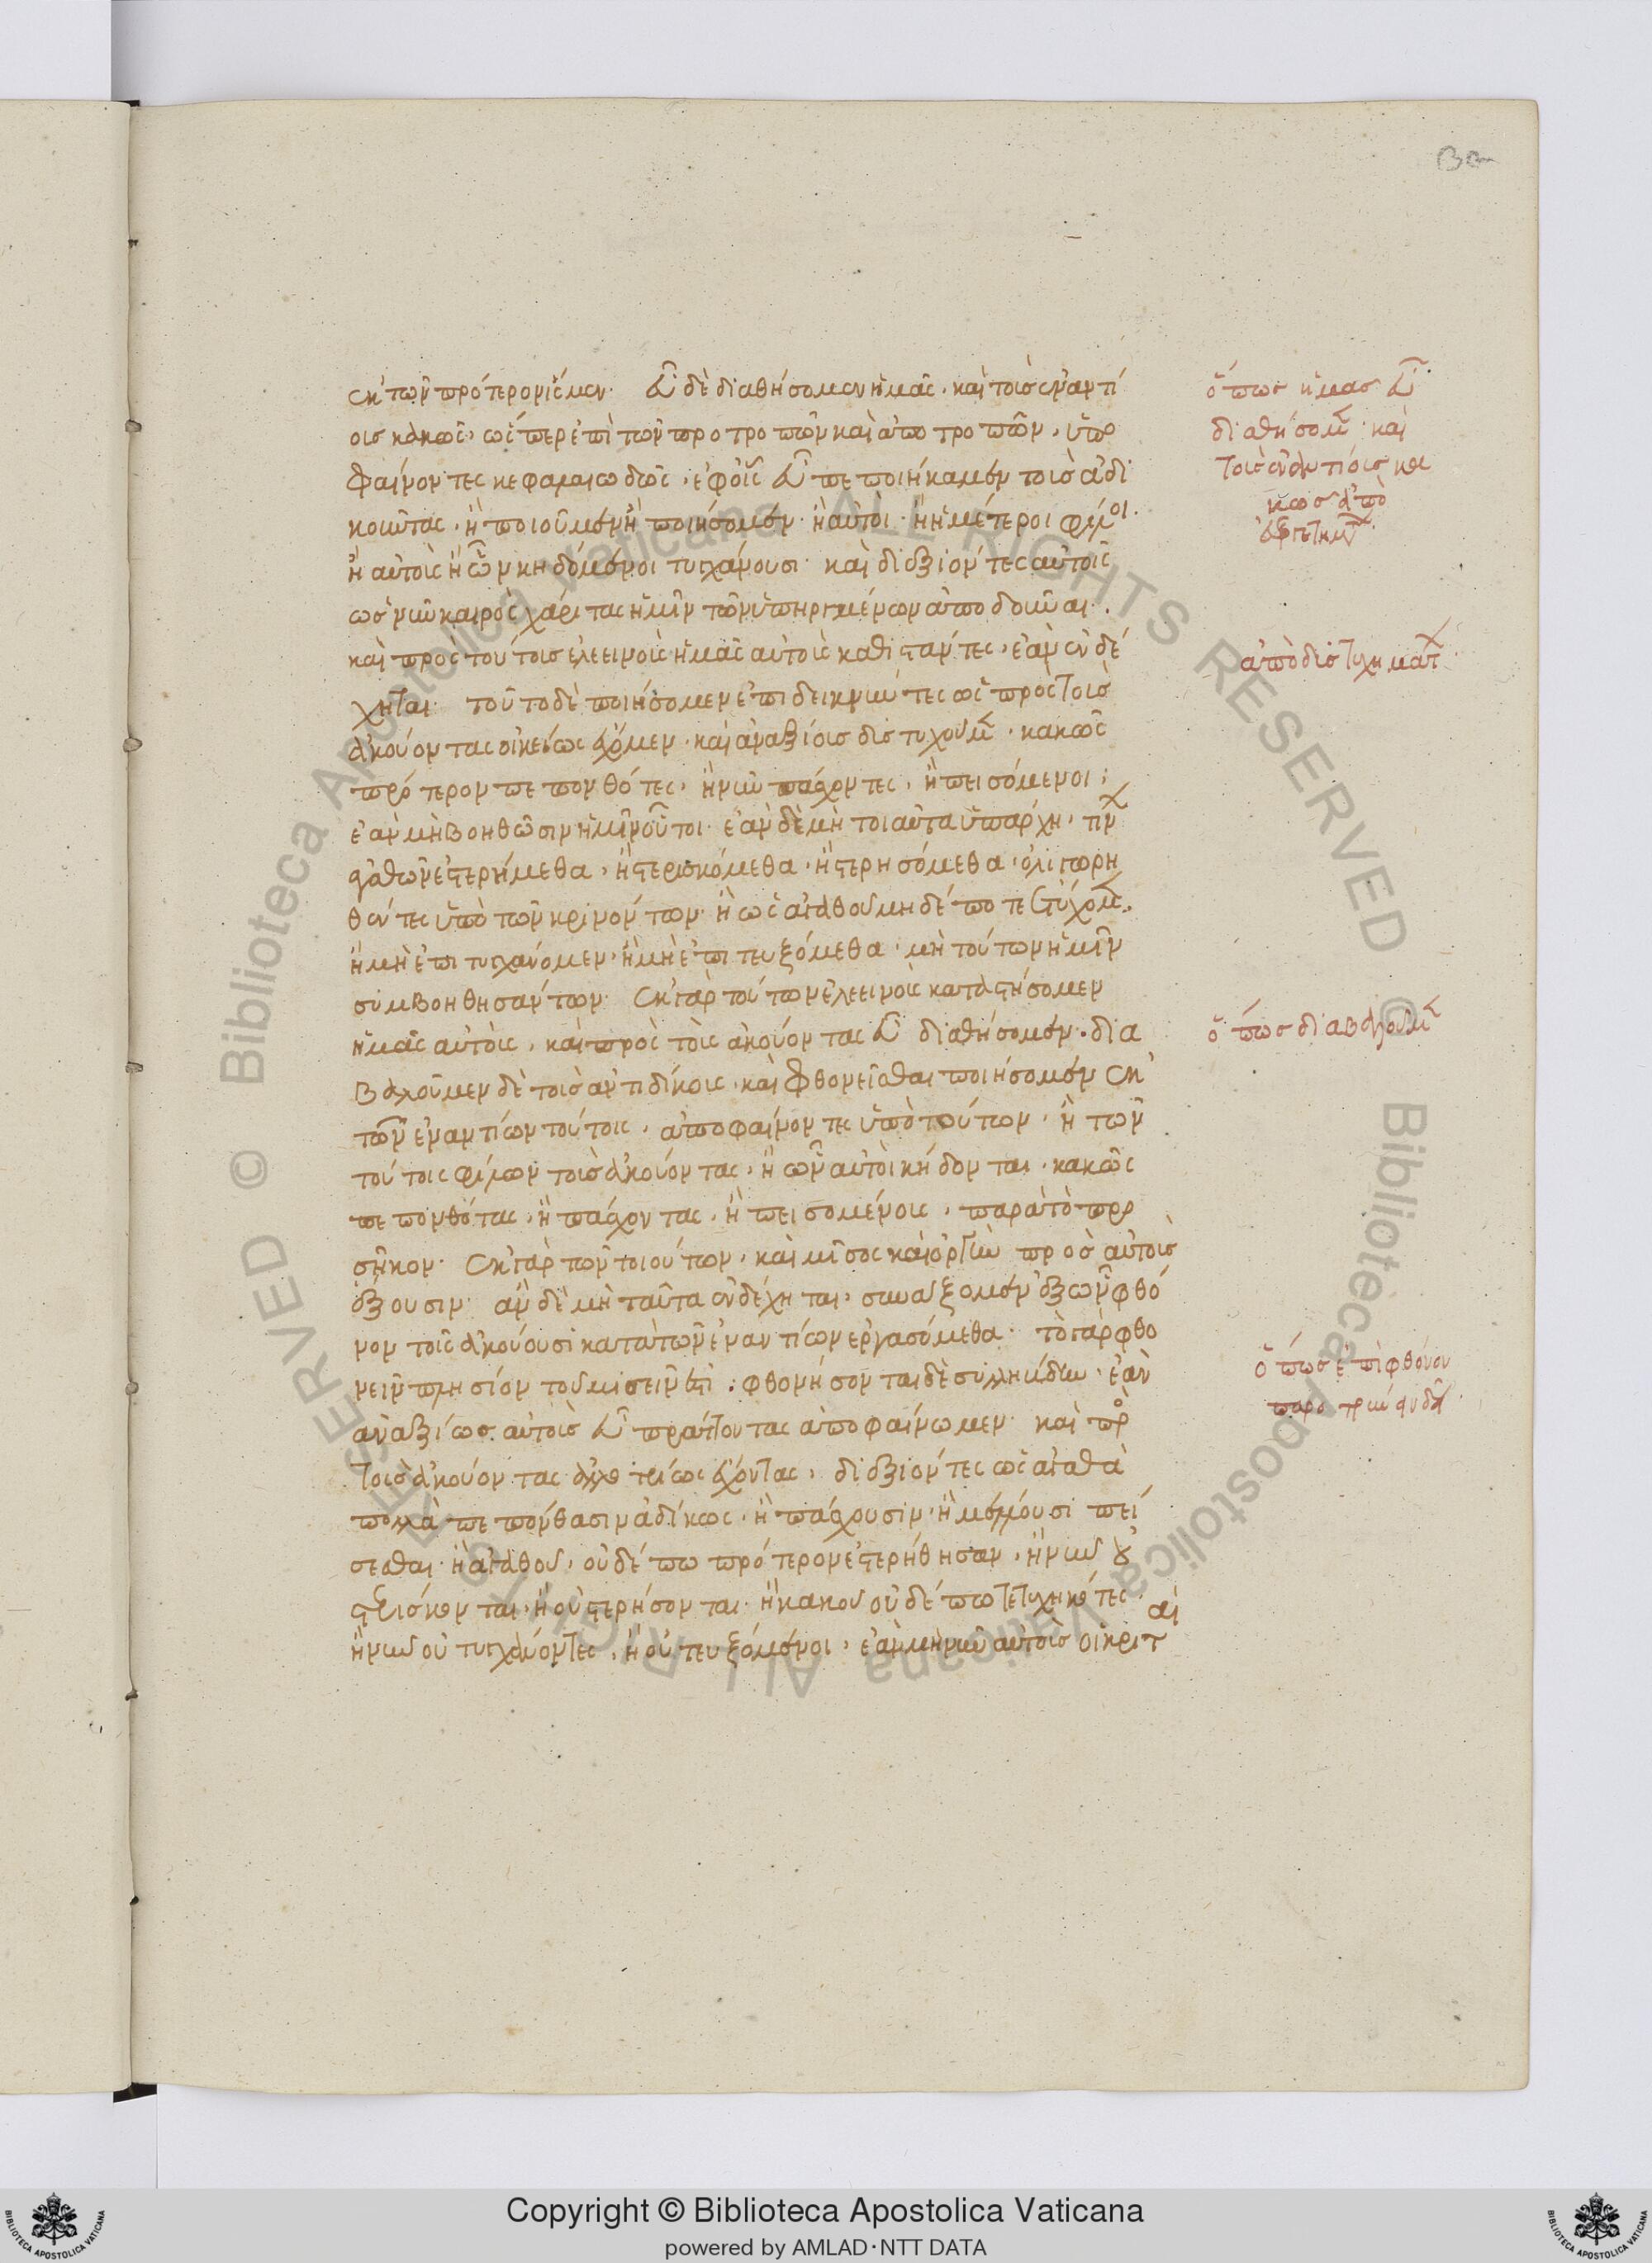 ἐκ τῶν πρότερον ἴσμεν. εὖ δὲ διαθήσομεν ἡμᾶς, καὶ τοὺς ἐναντί
ους κακῶς, ὥσπερ ἐπὶ τῶν προτροπῶν καὶ ἀποτροπῶν, ὑπο
φαίνοντες κεφαλαιωδῶς, ἐφ' οἷς εὖ πεποιήκαμεν τοὺς ἀδι
κοῦντας, ἢ ποιοῦμεν ἢ ποιήσομεν, ἢ αὐτοὶ, ἢ ἡμέτεροι φίλοι.
ἢ αὐτοὺς ἢ ὧν κηδόμενοι τυγχάνουσι. καὶ διεξιόντες αὐτοῖς
ὡς νῦν καιρὸς χάριτας ἡμῖν τῶν ὑπηργμένων ἀποδοῦναι.
καὶ πρὸς τούτοις ἐλεεινοὺς ἡμᾶς αὐτοὺς καθιστάντες, ἐὰν ἐνδέ
χηται. τοῦτο δὲ ποιήσομεν ἐπιδεικνύντες ὡς πρὸς τοὺς
ἀκούοντας οἰκείως ἔχομεν, καὶ ἀναξίοις δυστυχοῦμεν, κακῶς
πρότερον πεπονθότες, ἢ νῦν πάσχοντες, ἢ πεισόμενοι,
ἐὰν μὴ βοηθῶσιν ἡμῖν οὗτοι. ἐὰν δὲ μὴ τοιαῦτα ὑπάρχῃ, τίνων
ἀγαθῶν ἐστερήμεθα, ἢ στερισκόμεθα, ἢ στερησόμεθα, ὀλιγωρη
θέντες ὑπὸ τῶν κρινόντων. ἢ ὡς ἀγαθοῦ μηδέποτε ἐτύχομεν,
ἢ μὴ ἐπιτυγχάνομεν, ἢ μὴ ἐπιτευξόμεθα, μὴ τούτων ἡμῖν
συμβοηθησάντων. ἐκ γὰρ τούτων ἐλεεινοὺς καταστήσομεν
ἡμᾶς αὐτοὺς, καὶ πρὸς τοὺς ἀκούοντας εὖ διαθήσομεν. δια
βαλοῦμεν δὲ τοὺς ἀντιδίκους, καὶ φθονεῖσθαι ποιήσομεν ἐκ
τῶν ἐναντίων τούτοις, ἀποφαίνοντες ὑπὸ τούτων, ἢ τῶν
τούτοις φίλων τοὺς ἀκούοντας, ἢ ὧν αὐτοὶ κήδονται, κακῶς
πεπονθότας, ἢ πάσχοντας, ἢ πεισομένους, παρὰ τὸ προ
σῆκον. ἐκ γὰρ τῶν τοιούτων, καὶ μῖσος καὶ ὀργὴν πρὸς αὐτοὺς
ἕξουσιν. ἂν δὲ μὴ ταῦτα ἐνδέχηται, συνάξομεν ἐξ ὧν φθό
νον τοῖς ἀκούουσι κατὰ τῶν ἐναντίων ἐργασόμεθα. τὸ γὰρ φθο
νεῖν πλησίον τοῦ μισεῖν ἐστί. φθονήσονται δὲ συλλήβδην, ἐὰν
ἀναξίως αὐτοὺς εὖ πράττοντας ἀποφαίνωμεν. καὶ πρὸς
τοὺς ἀκούοντας ἀλλοτρίως ἔχοντας, διεξιόντες ὡς ἀγαθὰ
πολλὰ πεπόνθασιν ἀδίκως, ἢ πάσχουσιν, ἢ μέλλουσι πεί
σεσθαι. ἢ ἀγαθοῦ, οὐδέπω πρότερον ἐστερήθησαν, ἢ νῦν οὐ
στερίσκονται, ἢ οὐ στερήσονται. ἢ κακοῦ οὐδέπω τετυχηκότες.
ἢ νῦν οὐ τυγχάνοντες, ἢ οὐ τευξόμενοι, ἐὰν μὴ νῦν αὐτοὺς οἱ κριταὶ
ὅπως ἡμᾶς εὖ
διαθήσομεν καὶ
τοὺς ἐναντίους κα
κῶς ἀπὸ
ἀπὸ δυστυχημάτων
ὅπως διαβαλοῦμεν
ὅπως ἐπίφθονον